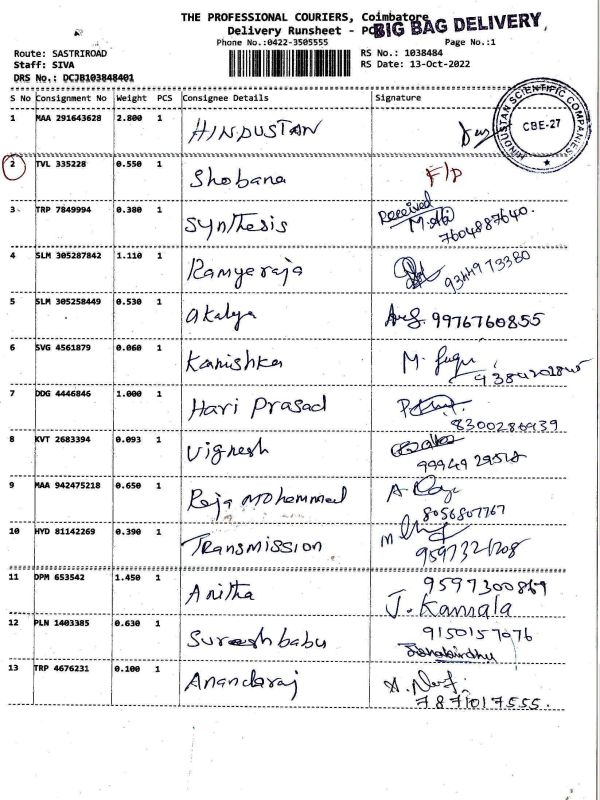 THE PROFESSIONAL COURIERS, Coimbatore
Delivery Runsheet - PO
BIG BAG DELIVERY
Phone No.:0422-3505555
Page No.:1
Route: SASTRIROAD
RS No.: 1038484
Staff: SIVA
RS Date: 13-Oct-2022
DRS No.: DCJB103848401
S No Consignment No Weight PCS Consignee Details Signature
HINDUSTAN SCIENTIFIC COMPANIES
CBE-27
1 MAA 291643628 2.800 1 HINDUSTAN
2 TVL 335228 0.550 1 Shobana F/D
3 TRP 7849994 0.380 1 Synthesis Received
M. Abi
7604887640.
4 SLM 305287842 1.110 1 Ramyeraja 9344973380
5 SLM 305258449 0.530 1 akalya 9976760855
6 SVG 4561879 0.060 1 Kanishka M.
7 DDG 4446846 1.000 1 Hari Prasad
8 KVT 2683394 0.093 1 Vignesh
9 MAA 942475218 0.650 1 Reja Mohammed A.
8056807767
10 HYD 81142269 0.390 1 TRANSMISSION
11 DPM 653542 1.450 1 Anitha
J. Kamala
12 PLN 1403385 0.630 1 Sureshbabu 9150157076
13 TRP 4676231 0.100 1 Anandaraj
7871017555.